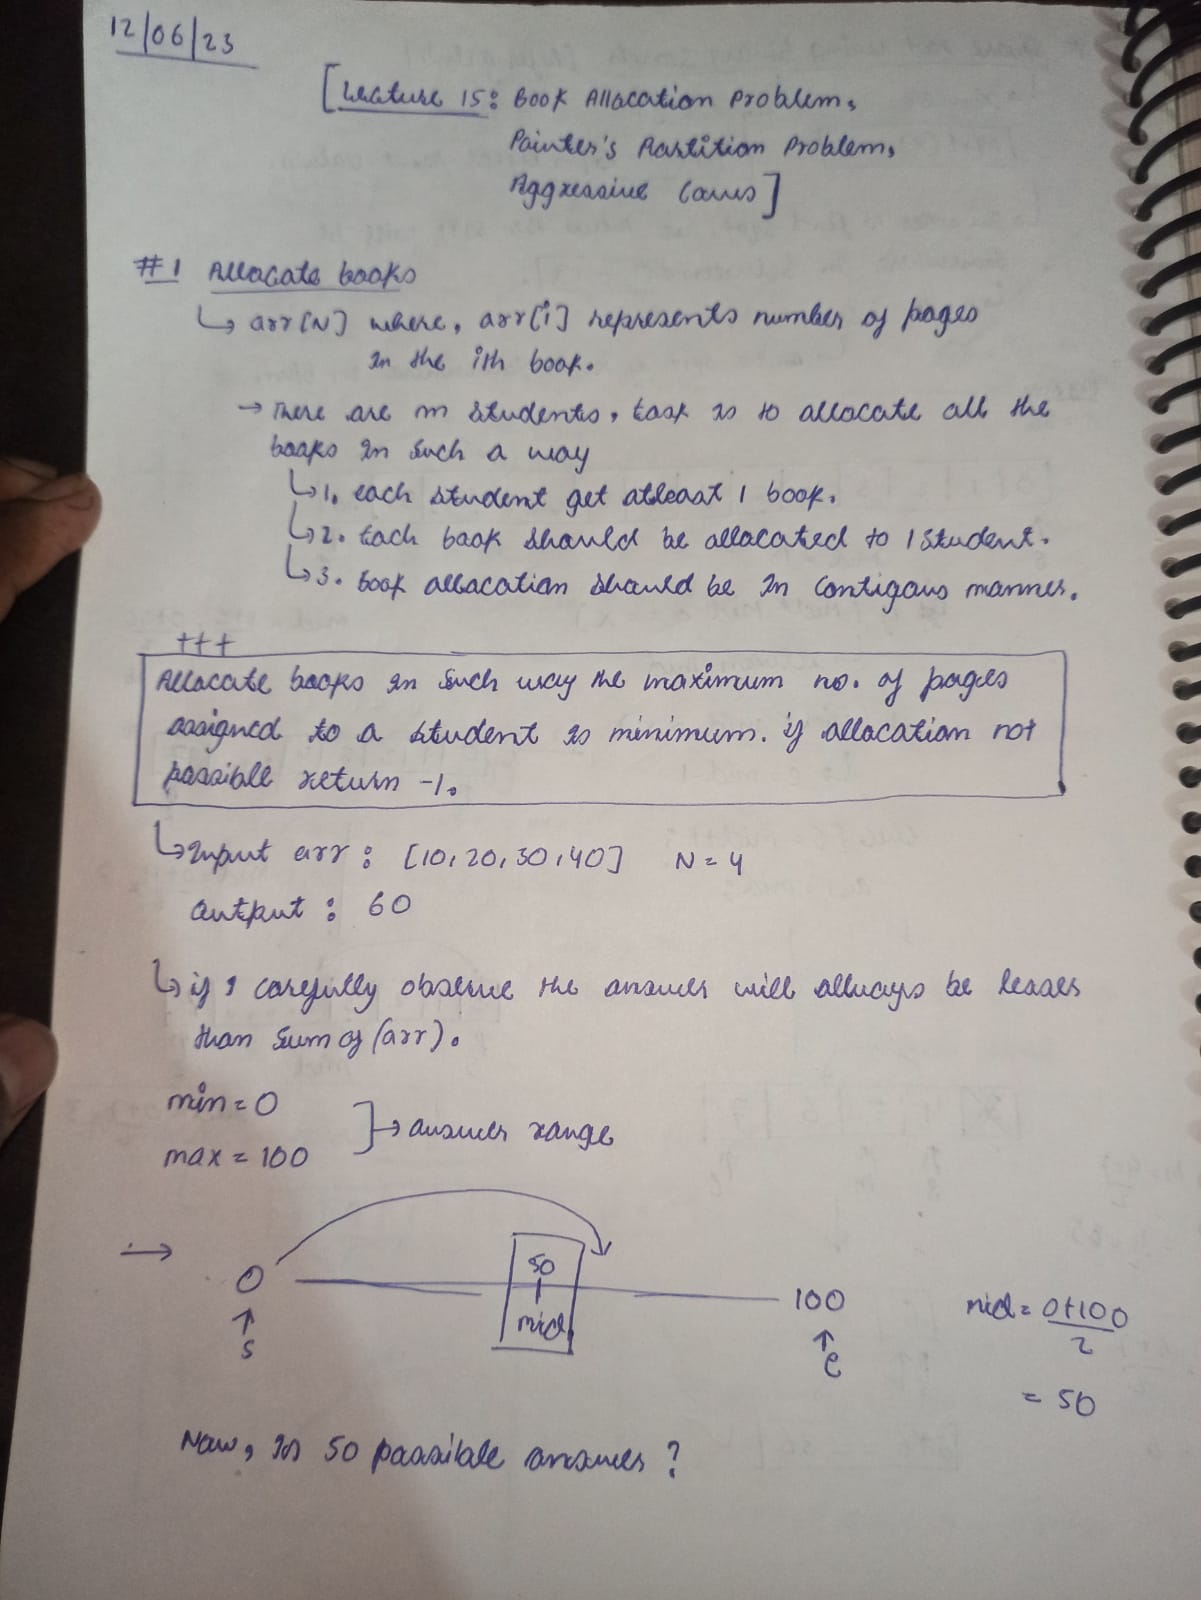 12/06/23
[Lecture 15: Book Allocation Problem,
Painter's Partition Problem,
Aggressive Cows]
#1 Allocate books
↳ arr[N] where, arr[i] represents number of pages
in the ith book.
→ There are m students, task is to allocate all the
books in such a way
↳1. each student get atleast 1 book.
↳2. Each book should be allocated to 1 student.
↳3. Book allocation should be in contigous manner.
+++
Allocate books in such way the maximum no. of pages
assigned to a student is minimum. if allocation not
possible return -1.
↳Input arr : [10,20,30,40] N = 4
output : 60
↳if I carefully observe the answer will allways be lesser
than sum of (arr).
min = 0
max = 100
]→ answer range
→ 0 50 100
mid
↑ s ↑ e
mid = 0+100
2
= 50
Now, is 50 possible answer ?